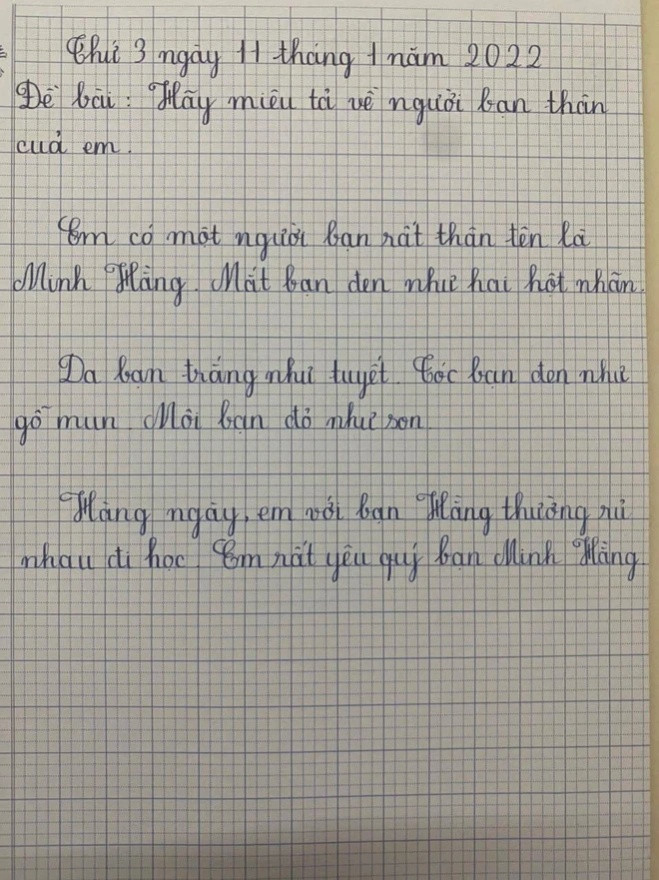 Thứ 3 ngày 11 tháng 1 năm 2022
Đề bài : Hãy miêu tả về người bạn thân
của em.
Em có một người bạn rất thân tên là
Minh Hằng. Mắt bạn đen như hai hột nhãn.
Da bạn trắng như tuyết. Tóc bạn đen như
gỗ mun. Môi bạn đỏ như son
Hàng ngày, em với bạn Hằng thường rủ
nhau đi học. Em rất yêu quý bạn Minh Hằng